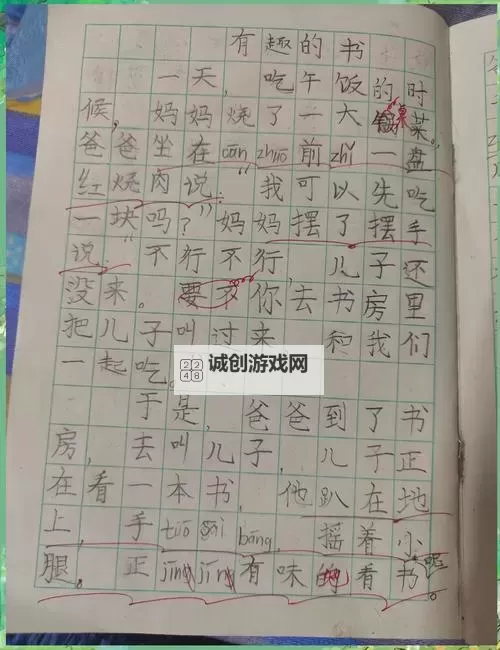 有趣的书
一天，吃午饭的时
候，妈妈烧了一大桌菜。
爸爸坐在cān zhuō前zhǐ一盘
红烧肉说："我可以先吃
一块吗？"妈妈摆了摆手
说："不行不行，儿子还
没来。要不你去书房里
把儿子叫过来 和我们
一起吃。
诚创游戏网
2248
于是，爸爸到了书
房，去叫儿子，儿子正
在看一本书，他趴在地
上，手tuō sāi bāng，摇着小
腿。正jīng jīng有味的看书呢。